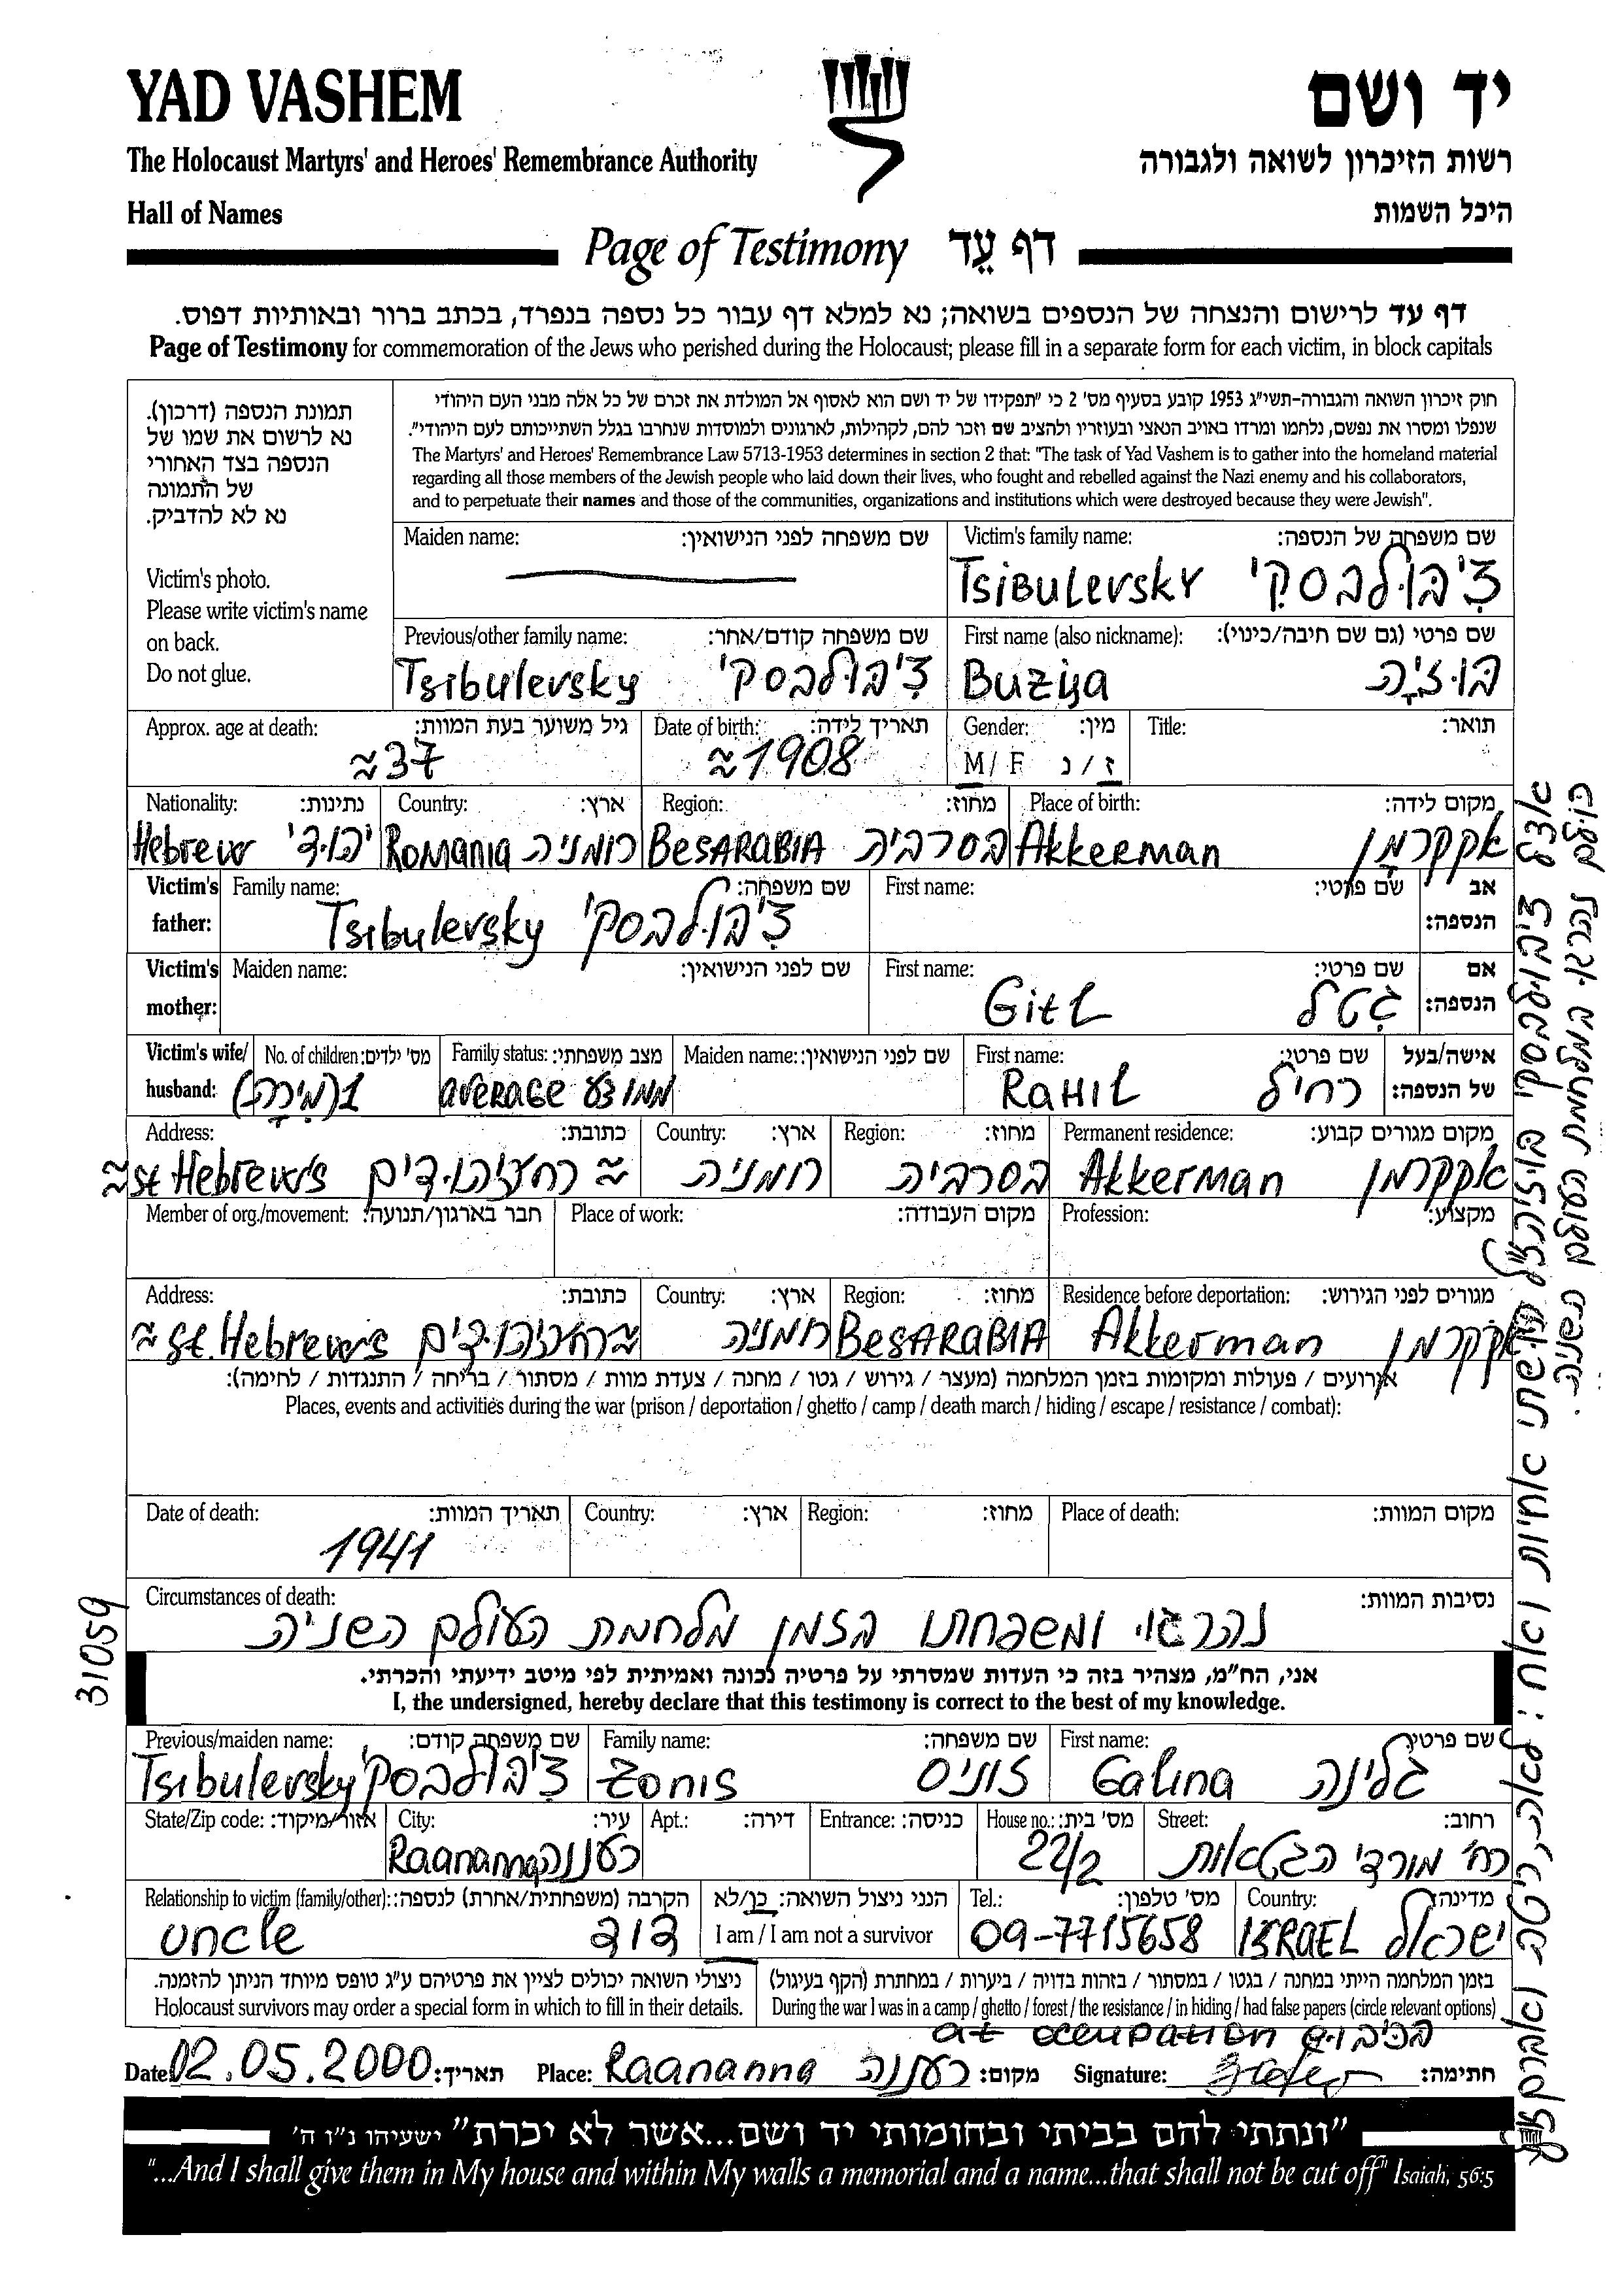 YAD VASHEM
יד ושם
The Holocaust Martyrs' and Heroes' Remembrance Authority
רשות הזיכרון לשואה ולגבורה
Hall of Names
היכל השמות
Page of Testimony דף עֵד
דף עד לרישום והנצחה של הנספים בשואה; נא למלא דף עבור כל נספה בנפרד, בכתב ברור ובאותיות דפוס.
Page of Testimony for commemoration of the Jews who perished during the Holocaust; please fill in a separate form for each victim, in block capitals
תמונת הנספה (דרכון).
נא לרשום את שמו של
הנספה בצד האחורי
של התמונה
נא לא להדביק.
Victim's photo.
Please write victim's name
on back.
Do not glue.
חוק זיכרון השואה והגבורה-תשי"ג 1953 קובע בסעיף מס' 2 כי "תפקידו של יד ושם הוא לאסוף אל המולדת את זכרם של כל אלה מבני העם היהודי
שנפלו ומסרו את נפשם, נלחמו ומרדו באויב הנאצי ובעוזריו ולהציב שם וזכר להם, לקהילות, לארגונים ולמוסדות שנחרבו בגלל השתייכותם לעם היהודי".
The Martyrs' and Heroes' Remembrance Law 5713-1953 determines in section 2 that: "The task of Yad Vashem is to gather into the homeland material
regarding all those members of the Jewish people who laid down their lives, who fought and rebelled against the Nazi enemy and his collaborators,
and to perpetuate their names and those of the communities, organizations and institutions which were destroyed because they were Jewish".
Maiden name: שם משפחה לפני הנישואין: Victim's family name: שם משפחה של הנספה:
Tsibulevsky צִיבולבסקי
Previous/other family name: שם משפחה קודם/אחר: First name (also nickname): שם פרטי (גם שם חיבה/כינוי):
Tsibulevsky צִיבולבסקי Buziya בוזיָה
Approx. age at death: גיל משוער בעת המוות: Date of birth: תאריך לידה: Gender: מין: Title: תואר:
≈37 ≈1908 M/ F ז / נ
Nationality: נתינות: Country: ארץ: Region: מחוז: Place of birth: מקום לידה:
Hebrew יהודי Romania רומניה BesARABIA בסרביה Akkerman אקקרמָן
Victim's father: Family name: שם משפחה: First name: שם פרטי: אב הנספה:
Tsibulevsky צִיבולבסקי
Victim's mother: Maiden name: שם לפני הנישואין: First name: שם פרטי: אם הנספה:
Gitl גִטל
Victim's wife/ husband: No. of children: מס' ילדים: Family status: מצב משפחתי: Maiden name: שם לפני הנישואין: First name: שם פרטי: אישה/בעל של הנספה:
1(מִירָה) average ממוצע Rahil רחיל
Address: כתובת: Country: ארץ: Region: מחוז: Permanent residence: מקום מגורים קבוע:
≈st Hebrew's רח' יהודים ≈ רומניה בסרביה Akkerman אקקרמן
Member of org./movement: חבר בארגון/תנועה: Place of work: מקום העבודה: Profession: מקצוע:
Address: כתובת: Country: ארץ: Region: מחוז: Residence before deportation: מגורים לפני הגירוש:
≈ st. Hebrew's רח' יהודים≈ רומניה BesARABIA Akkerman אקקרמן
אירועים / פעולות ומקומות בזמן המלחמה (מעצר / גירוש / גטו / מחנה / צעדת מוות / מסתור / בריחה / התנגדות / לחימה):
Places, events and activities during the war (prison / deportation / ghetto / camp / death march / hiding / escape / resistance / combat):
Date of death: תאריך המוות: Country: ארץ: Region: מחוז: Place of death: מקום המוות:
1941
Circumstances of death: נסיבות המוות:
נהרגו ומשפחתו בזמן מלחמת העולם השניה
31059
אני, הח"מ, מצהיר בזה כי העדות שמסרתי על פרטיה נכונה ואמיתית לפי מיטב ידיעתי והכרתי.
I, the undersigned, hereby declare that this testimony is correct to the best of my knowledge.
Previous/maiden name: שם משפחה קודם: Family name: שם משפחה: First name: שם פרטי:
Tsibulevsky צִיבולבסקי Zonis זוניס Galina גלינה
State/Zip code: אזור/מיקוד: City: עיר: Apt.: דירה: Entrance: כניסה: House no.: מס' בית: Street: רחוב:
Raananna רעננה 22/2 רח' מורדי הגטאות
Relationship to victim (family/other): הקרבה (משפחתית/אחרת) לנספה: הנני ניצול השואה: כן/לא Tel.: מס' טלפון: Country: מדינה:
uncle דוד I am / I am not a survivor 09-7715658 ISRAEL ישראל
ניצולי השואה יכולים לציין את פרטיהם ע"ג טופס מיוחד הניתן להזמנה. בזמן המלחמה הייתי במחנה / בגטו / במסתור / בזהות בדויה / ביערות / במחתרת (הקף בעיגול)
Holocaust survivors may order a special form in which to fill in their details. During the war I was in a camp / ghetto / forest / the resistance / in hiding / had false papers (circle relevant options)
at occupation בכיבוש
Date: 02.05.2000 תאריך: Place: Raananna רעננה מקום: Signature: חתימה:
"ונתתי להם בביתי ובחומותי יד ושם...אשר לא יכרת" ישעיהו נ"ו ה'
"...And I shall give them in My house and within My walls a memorial and a name...that shall not be cut off" Isaiah, 56:5
אצל ציבולבסקי בוזיה ז"ל היו שתי אחיות ואח: שרה, ריטה ואברהם
כולם נהרגו במלחמת העולם השניה.